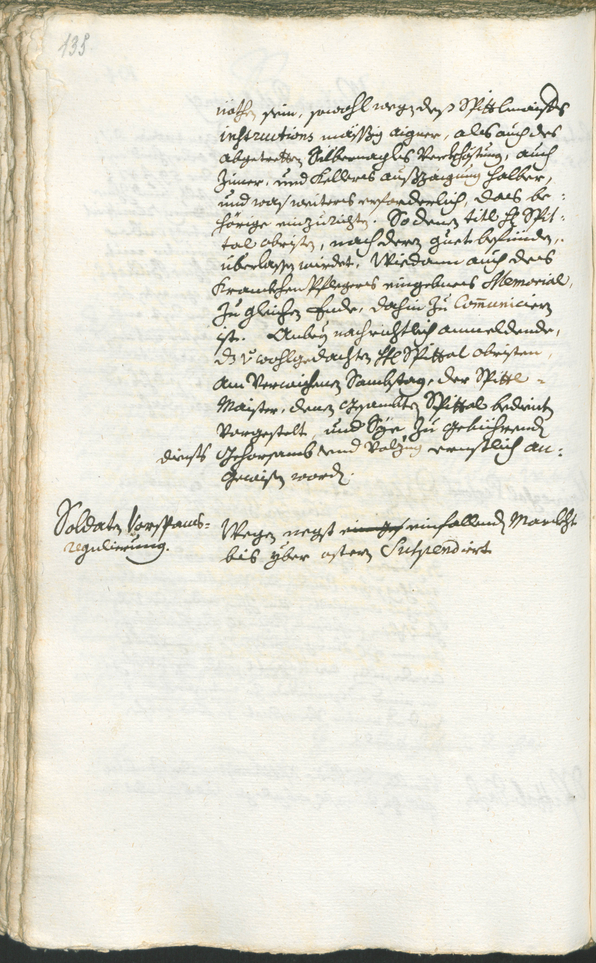 135.
nöthig sein, sowohl wegen deß Spitlmaisters
instructions mässig aigner, als auch des
abgetretten Silbernaglß Verkhostung, auch
Zimer, und Kellers außzaigung halber,
und was weiters erforderlich, das be=
hörige einzurichten. So denen titl H: Spit=
tal obristen, nach deren guetbefinden,
überlassen wirdet, Wiedann auch des
Krankhen Pflegers eingebnes Memorial,
zu gleichen Ende, dahin zu Communiciern
ist. Anbey nachrichtlich anmeldende,
dz v: wohlgedachten H: Spittal obristen,
am verwichenen Sambstag, der Spittl=
Maister, denen gesambten Spittal bedienten
vorgestelt, und Sye zu gebührenden
diensts gehorsamb und volzug ernstlich an=
gewisen worden.
Soldaten Vorspans=
regulierung.
Wegen negst einfallenden Markht
bis yber ostern Suspendiert